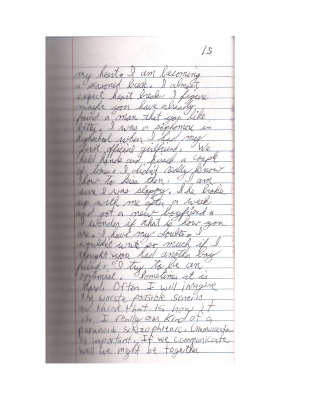 15
my heart. I am becoming
a seasoned vet. I almost
expect heart break I figure
maybe you have already
found a man that you like
better. I was a sophomore in
highschool when I had my
first official girlfriend. We
held hands and kissed a couple
of times I didn't really know
how to kiss then. I am
sure I was sloppy. She broke
up with me after a week
and got a new boyfriend.
I wonder if that is how you
are. I have my doubts. I
wouldnt write so much if I
thought you had another boy
friend. I try to be an
optimist. Sometimes it is
Hard. Often I will imagine
the worste possible
and think that is how it
is. I really am kind of a
paranoid schizophrenic.
is important. If we communicate
well we might be together